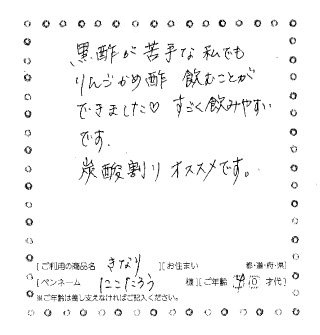 黒酢が苦手な私でも
りんごかめ酢 飲むことが
できました♡ すごく飲みやすい
です.
炭酸割り オススメです。
[ご利用の商品名 きなり ] [お住まい 都・道・府・県]
[ペンネーム にこたろう 様] [ご年齢 40 才代]
※ご年齢は差し支えなければご記入ください。